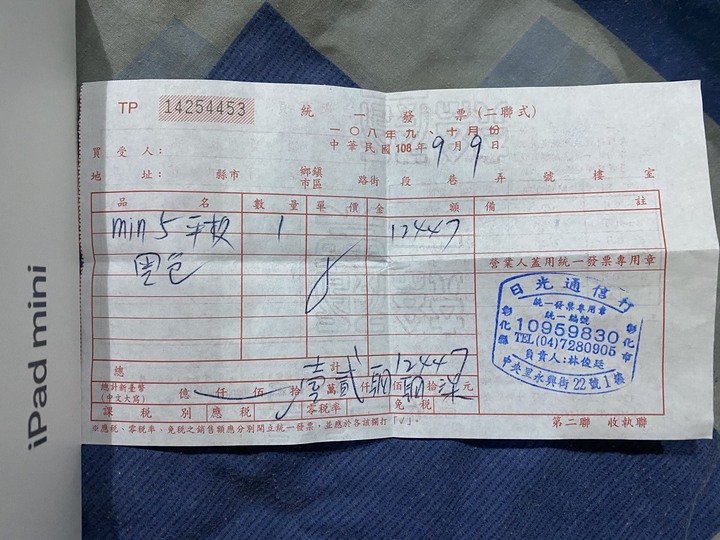 iPad mini
TP 14254453
統一發票(二聯式)
一〇八年九、十月份
中華民國108年9月9日
買受人：
地址： 縣市 鄉鎮市區 路街 段 巷 弄 號 樓 室
品名 數量 單價 金額 備註
min 5 平板 1 12447
黑色
營業人蓋用統一發票專用章
日光通信行
統一發票專用章
統一編號
彰化縣 10959830 彰化市
TEL(04)7280905
負責人:林俊廷
中央里永興街22號1樓
總計 12447
總計新臺幣(中文大寫) 億 仟 佰 拾壹 萬貳 仟肆 佰肆 拾柒 元
課稅別 應稅 零稅率 免稅
※應稅、零稅率、免稅之銷售額應分別開立統一發票，並應於各該欄打「√」。
第二聯 收執聯